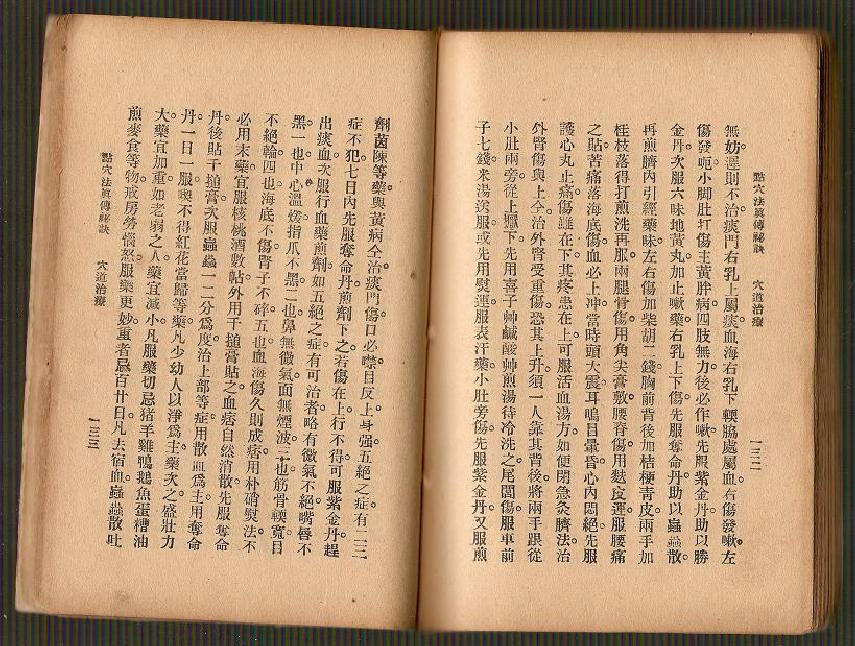 點穴法眞傳秘訣　穴道治療
一三二
無妨遲則不治痰門右乳上屬痰血海右乳下輭脇處屬血右傷發嗽左
傷發呃小脚肚打傷主黃胖病四肢無力後必作嗽先服紫金丹助以勝
金丹次服六味地黃丸加止嗽藥右乳上下傷先服奪命丹助以蟲散
再煎臍內引經藥味左右傷加柴胡二錢胸前背後加桔梗靑皮兩手加
桂枝落得打煎洗再服兩腿骨傷用角尖膏敷腰脊傷用麩皮運服腰痛
之貼苦痛落海底傷血必上冲當時頭大震耳鳴目暈昏心內悶絕先服
護心丸止痛傷雖在下其疼患在上可服活血湯方如便閉急灸臍法治
外腎傷與上仝治外腎受重傷恐其上升須一人靠其背後將兩手跟從
小肚兩旁從上下先用喜子艸鹹酸艸煎湯待冷洗之尾閭傷服車前
子七錢米湯送服或先用熨運服表汗藥小肚旁傷先服紫金丹又服煎
劑茵陳等藥與黃病仝治痰門傷口必噤目反上身强五絕之症有二三
症不犯七日內先服奪命丹煎劑下之若傷在上行不得可服紫金丹趕
出痰血次服行血藥煎劑如五絕之症有可治者略有微氣不絕嘴唇不
黑一也中心溫指爪不黑二也鼻無微氣面無煙波三也筋骨輭寬目
不絕輪四也海底不傷腎子不碎五也血海傷久則成痞用朴硝熨法不
必用末藥宜服核桃酒數帖外用千搥膏貼之血痞自然消散先服奪命
丹後貼千搥膏次服蟲一二分爲度治上部等症用散血爲主用奪命
丹一日一服喫不得紅花當歸等藥凡少幼人以淨爲主藥次之盛壯力
大藥宜加重如老弱之人藥宜減小凡服藥切忌猪羊雞鴨鵝魚蛋糟油
煎麥食等物戒房勞惱怒服藥更妙重者忌百廿日凡去宿血蟲散吐
點穴法眞傳秘訣　穴道治療
一三三